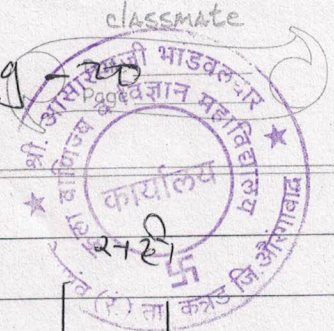 classmate
Page
श्री. आसारामजी भाडवलदार
कला वाणिज्य व विज्ञान महाविद्यालय
कार्यालय
सही
(रं.) ता. कन्नड जि. औरंगाबाद